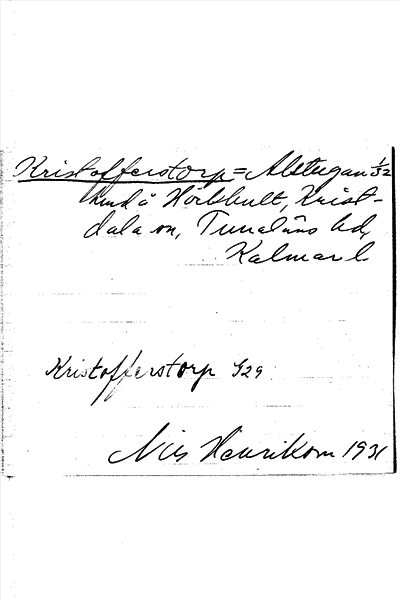 Kristofferstorp = Alstugan 1/32
under Hörbbult, Krist-
dala sn, Tunaläns hd,
Kalmar l.
Kristofferstorp G29
Nils Henrikson 1931